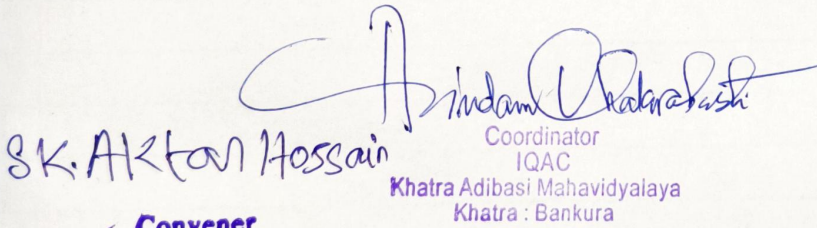 Arindam Chakrabarti
SK. Aktar Hossain
Coordinator
IQAC
Khatra Adibasi Mahavidyalaya
Khatra : Bankura
Convener